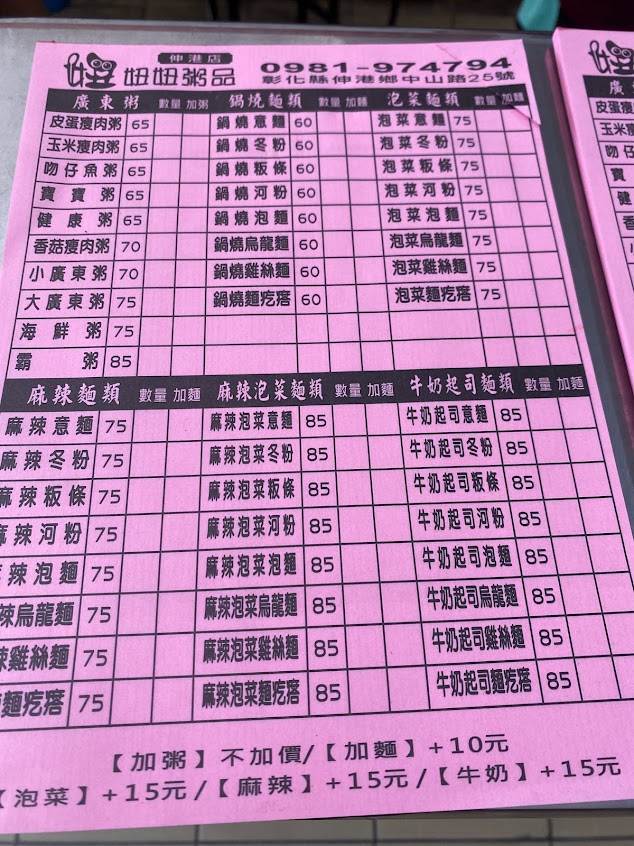 伸港店
妞妞粥品
0981-974794
彰化縣伸港鄉中山路25號
廣東粥 數量 加粥 鍋燒麵類 數量 加麵 泡菜麵類 數量 加麵
皮蛋瘦肉粥 65 鍋燒意麵 60 泡菜意麵 75
玉米瘦肉粥 65 鍋燒冬粉 60 泡菜冬粉 75
吻仔魚粥 65 鍋燒粄條 60 泡菜粄條 75
寶寶粥 65 鍋燒河粉 60 泡菜河粉 75
健康粥 65 鍋燒泡麵 60 泡菜泡麵 75
香菇瘦肉粥 70 鍋燒烏龍麵 60 泡菜烏龍麵 75
小廣東粥 70 鍋燒雞絲麵 60 泡菜雞絲麵 75
大廣東粥 75 鍋燒麵疙瘩 60 泡菜麵疙瘩 75
海鮮粥 75
霸粥 85
麻辣麵類 數量 加麵 麻辣泡菜麵類 數量 加麵 牛奶起司麵類 數量 加麵
麻辣意麵 75 麻辣泡菜意麵 85 牛奶起司意麵 85
麻辣冬粉 75 麻辣泡菜冬粉 85 牛奶起司冬粉 85
麻辣粄條 75 麻辣泡菜粄條 85 牛奶起司粄條 85
麻辣河粉 75 麻辣泡菜河粉 85 牛奶起司河粉 85
辣泡麵 75 麻辣泡菜泡麵 85 牛奶起司泡麵 85
辣烏龍麵 75 麻辣泡菜烏龍麵 85 牛奶起司烏龍麵 85
辣雞絲麵 75 麻辣泡菜雞絲麵 85 牛奶起司雞絲麵 85
麵疙瘩 75 麻辣泡菜麵疙瘩 85 牛奶起司麵疙瘩 85
【加粥】不加價/【加麵】+10元
【泡菜】+15元/【麻辣】+15元/【牛奶】+15元